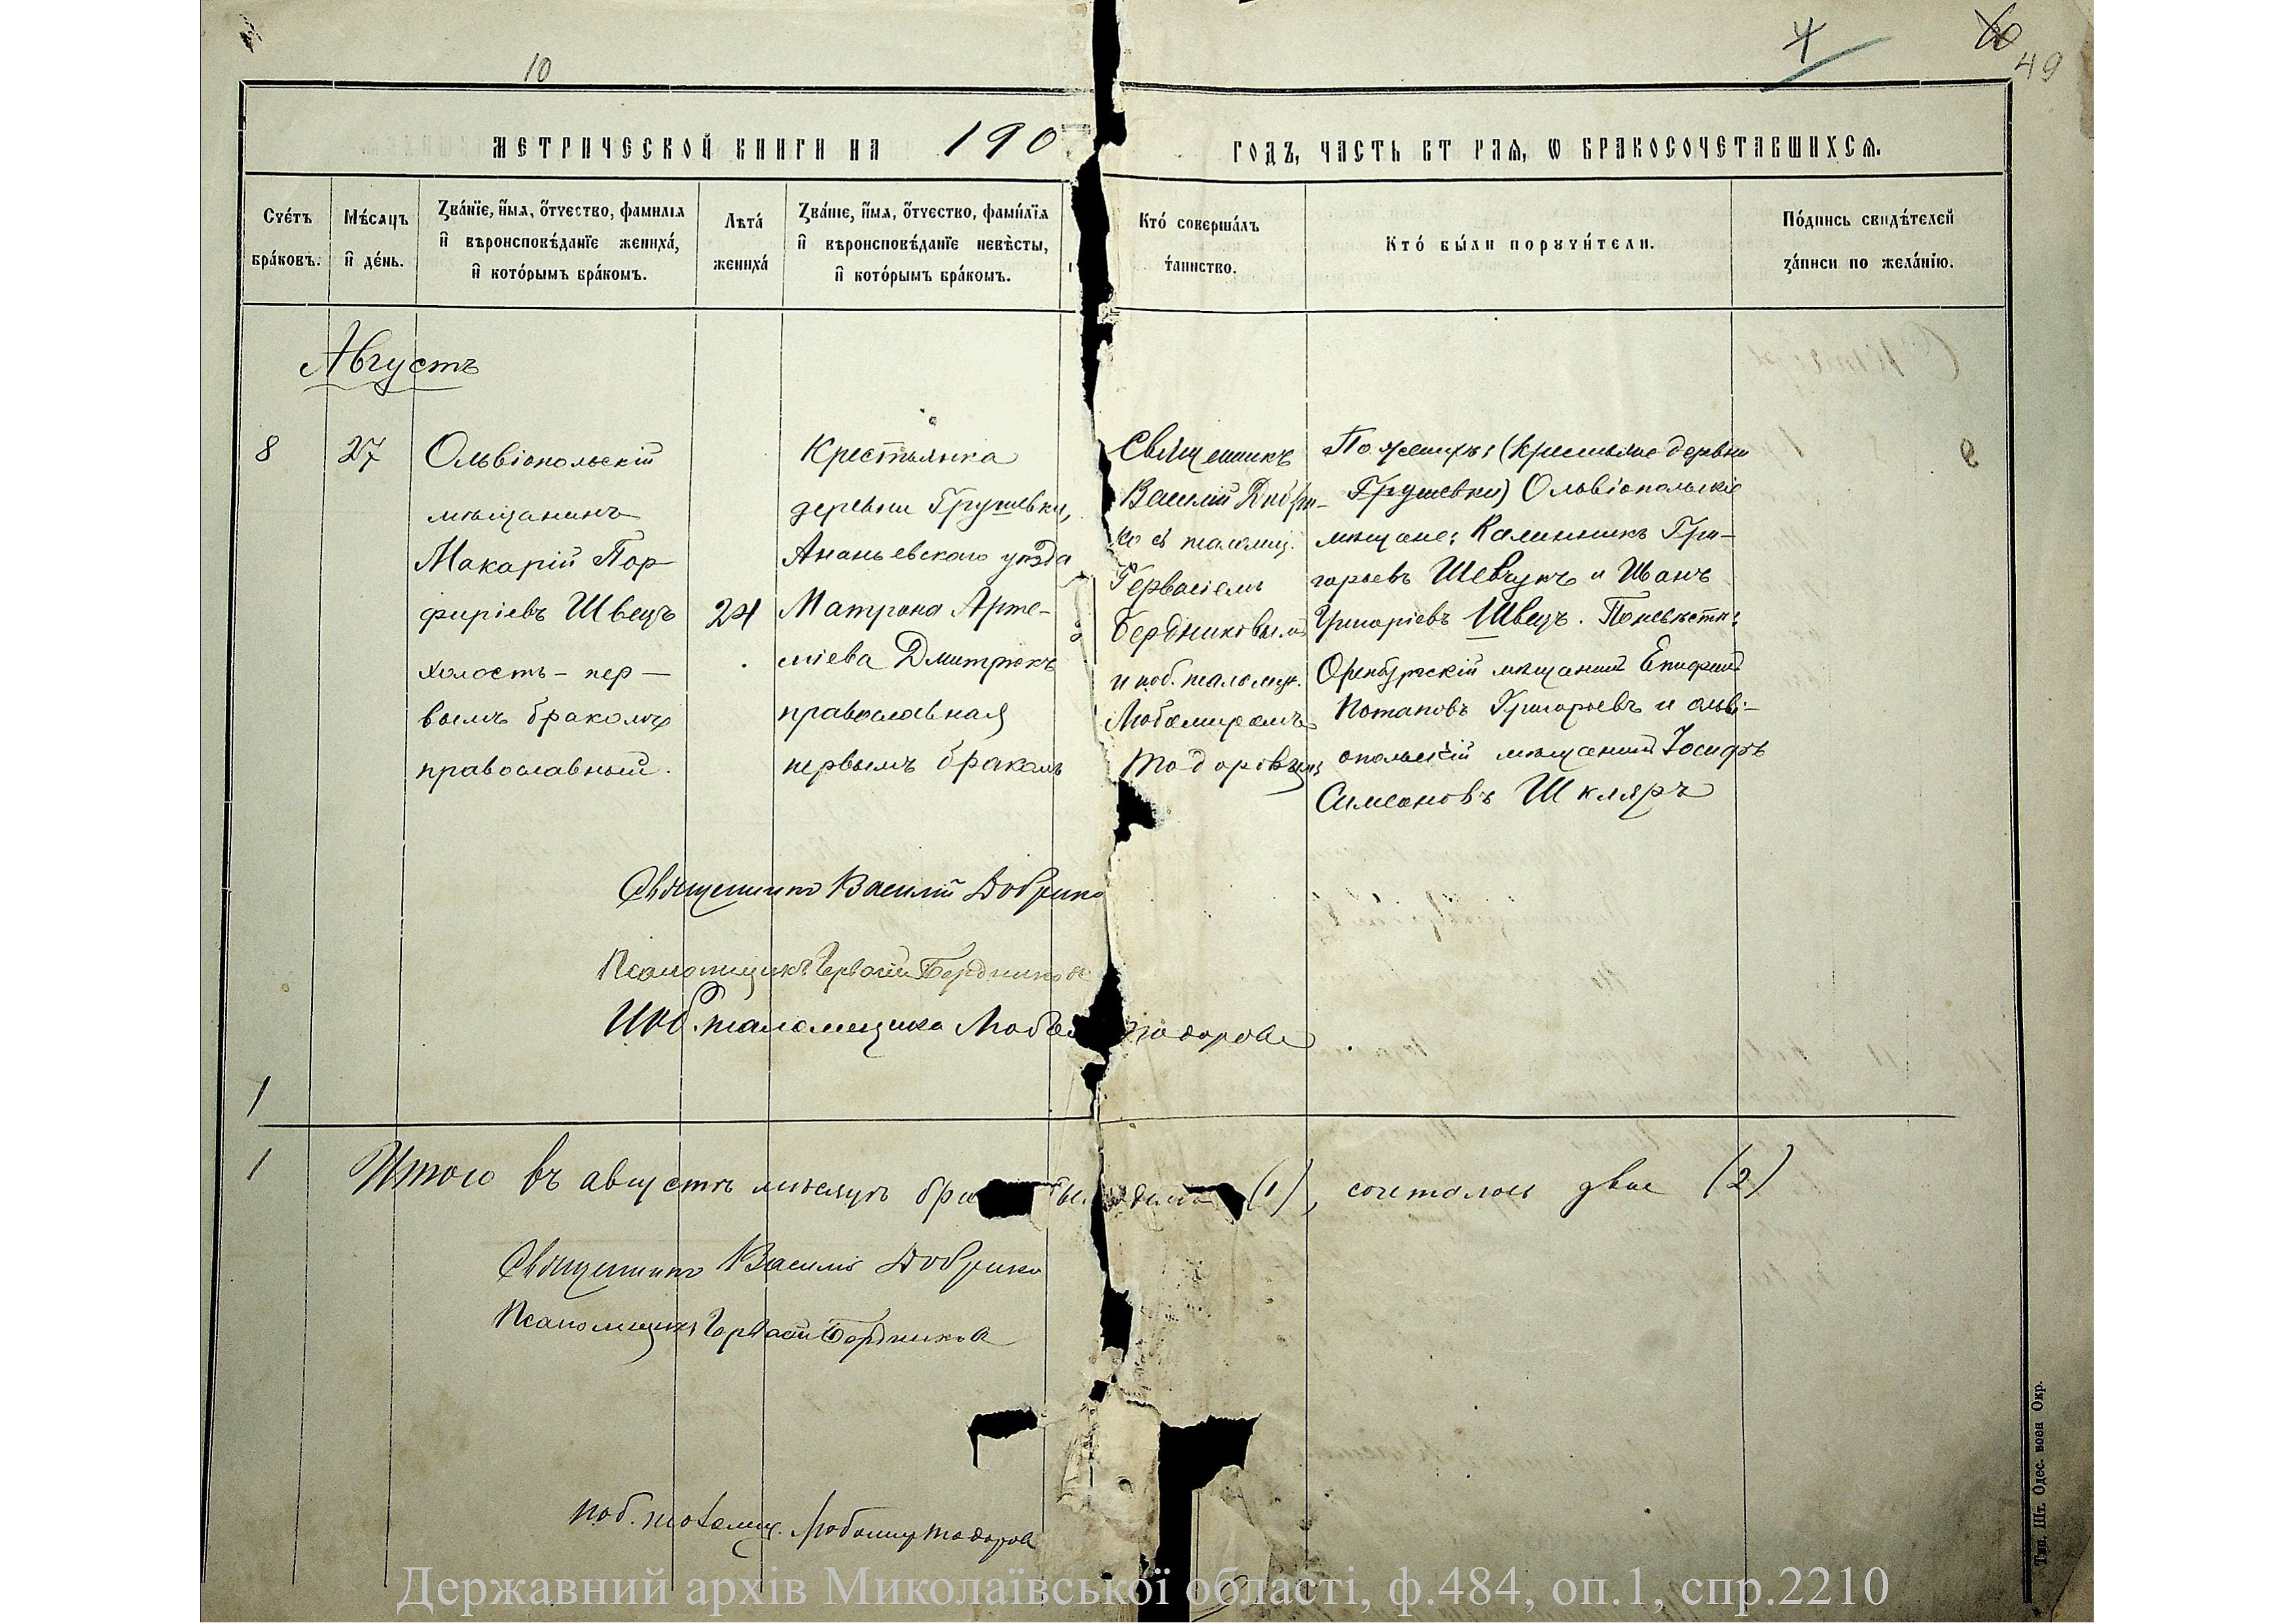 10
4
60
49
МЕТРИЧЕСКОЙ КНИГИ НА 190
ГОДЪ, ЧАСТЬ ВТ РАЯ, Ѡ БРАКОСОЧЕТАВШИХСЯ.
Счетъ браковъ.
Мѣсяцъ и день.
Званїе, имя, отчество, фамилїя
и вѣроисповѣданїе жениха,
и которымъ бракомъ.
Лѣта жениха
Званїе, имя, отчество, фамилїя
и вѣроисповѣданїе невѣсты,
и которымъ бракомъ.
Кто совершалъ
таинство.
Кто были поручители.
Подпись свидѣтелей
записи по желанїю.
Августъ
8
27
Ольвіопольскій
мѣщанинъ
Макарій Пор-
фиріевъ Швецъ
холостъ - пер-
вымъ бракомъ
православный.
24
Крестьянка
деревни Грушевки,
Ананьевскаго уѣзда
Матрона Арте-
міева Дмитрюкъ
православная
первымъ бракомъ
Священникъ
Василій Добри-
ко съ псаломщ.
Гервасіемъ
Бердниковымъ
и и об. псаломщ.
Любомиромъ
Тодоровымъ
По женихѣ: (крестьяне деревни
Грушевки) Ольвіопольскіе
мѣщане: Калинникъ Гри-
горьевъ Шевчукъ и Иванъ
Григоріевъ Швецъ. По невѣстѣ:
Оренбургскій мѣщанинъ Епифаній
Потаповъ Григорьевъ и ольві-
опольскій мѣщанинъ Іосифъ
Симеоновъ Шкляръ
Священникъ Василій Добрико
Псаломщикъ Гервасій Бердниковъ
И об. псаломщика Любом Тодоровъ
1
1
Итого въ августѣ мѣсяцѣ бра (1), сочеталось двое (2)
Священникъ Василій Добрико
Псаломщикъ Гервасій Бердниковъ
И об. псаломщ. Любомиръ Тодоровъ
Тип. Шт. Одес. воен Окр.
Державний архів Миколаївської області, ф.484, оп.1, спр.2210